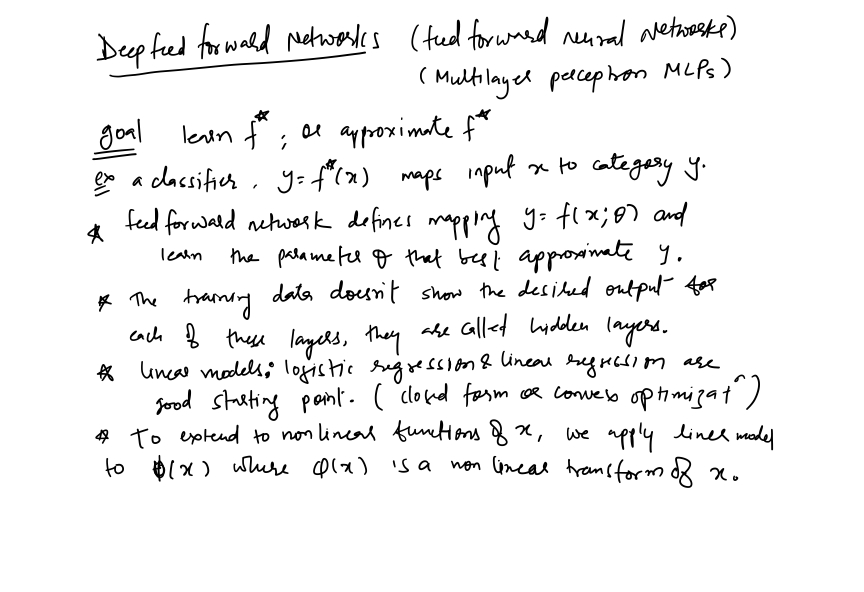 Deep feed forward Networks (feed forward neural Networks)
(Multilayer perceptron MLPs)
goal learn f*; or approximate f*
ex a classifier, y = f*(x) maps input x to category y.
* feed forward network defines mapping y = f(x; θ) and
learn the parameter θ that best approximate y.
* The training data doesn't show the desired output for
each of these layers, they are called hidden layers.
* linear models: logistic regression & linear regression are
good starting point. (closed form or convex optimizatⁿ)
* To extend to nonlinear functions of x, we apply linear model
to φ(x) where φ(x) is a non linear transform of x.